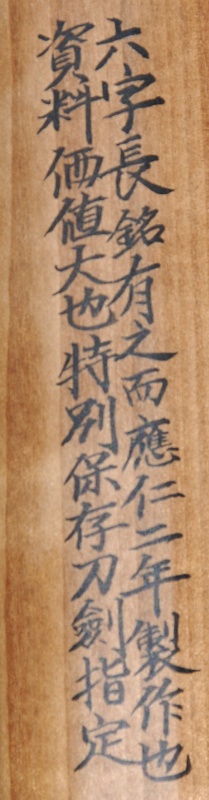 六字長銘有之而應仁二年製作也
資料価値大也特別保存刀劍指定